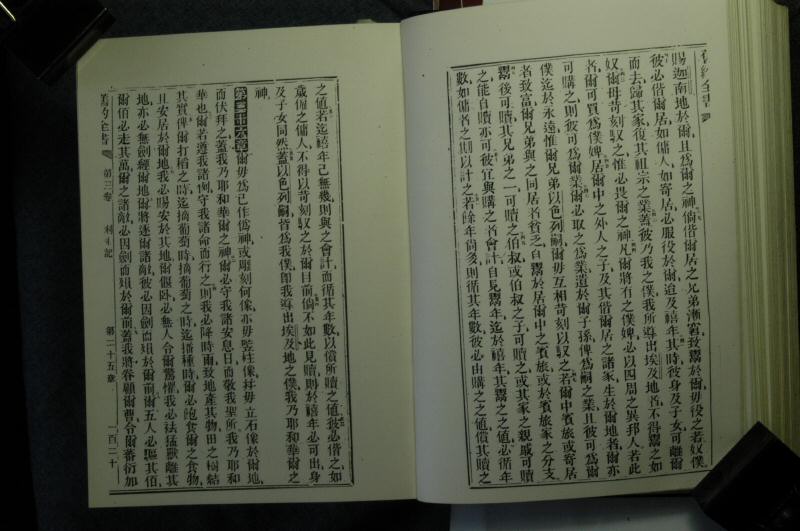 舊約全書
賜迦南地於爾且爲爾之神倘偕爾居之兄弟漸窮致鬻於爾毋役之若奴僕
彼必偕爾居如傭人如寄居必服役於爾迨及禧年其時彼身及子女可離爾
而去歸其家復其祖宗之業蓋彼乃我之僕我所導出埃及地者不得鬻之如
奴爾毋苛刻馭之惟必畏爾之神凡爾將有之僕婢必以四周之異邦人若此
者爾可買爲僕婢居爾中之外人之子及其偕爾居之諸家生於爾地者爾亦
可購之則彼可爲爾業爾必取之爲業遺於爾子孫俾爲嗣之業且彼可爲爾
僕迄於永遠惟爾兄弟以色列嗣爾毋互相苛刻以馭之若爾中賓旅或寄居
者致富爾兄弟與之同居者貧乏自鬻於居爾中之賓旅或於賓旅家之分支
鬻後可贖其兄弟之一可贖之伯叔或伯叔之子可贖之或其家之親戚可贖
之能自贖亦可彼宜與購之者會計自見鬻年迄於禧年其鬻之之値必循年
數如傭者之期以計之若餘年尙多則循其年數彼必由購之之値償其贖之
之値若迄禧年已無幾則與之會計而循其年數以償所贖之値彼必偕之如
歲僱之傭人不得以苛刻馭之於爾目前倘不如此見贖則於禧年必可出身
及子女同然蓋以色列嗣皆爲我僕卽我導出埃及地之僕我乃耶和華爾之
神
第二十六章 爾毋爲己作僞神或雕刻何像亦毋竪柱像幷毋立石像於爾地
而伏拜之蓋我乃耶和華爾之神爾必守我諸安息日而敬我聖所我乃耶和
華也爾若遵我諸例守我諸命而行之則我必降時雨致地產其物田之樹結
其實俾爾打稻之時迄摘葡萄時摘葡萄之時迄播種時爾必飽食爾之食物
且安居於爾地我必賜安於其地爾偃臥必無人令爾驚懼我必袪猛獸離其
地亦必無劍經爾地爾將逐爾諸敵彼必因劍而殞於爾前爾五人必驅其佰
爾佰必走其萬爾之諸敵必因劍而殞於爾前蓋我將眷顧爾曹令爾蕃衍加
舊約全書 第三卷 利未記 第二十五章 一百二十